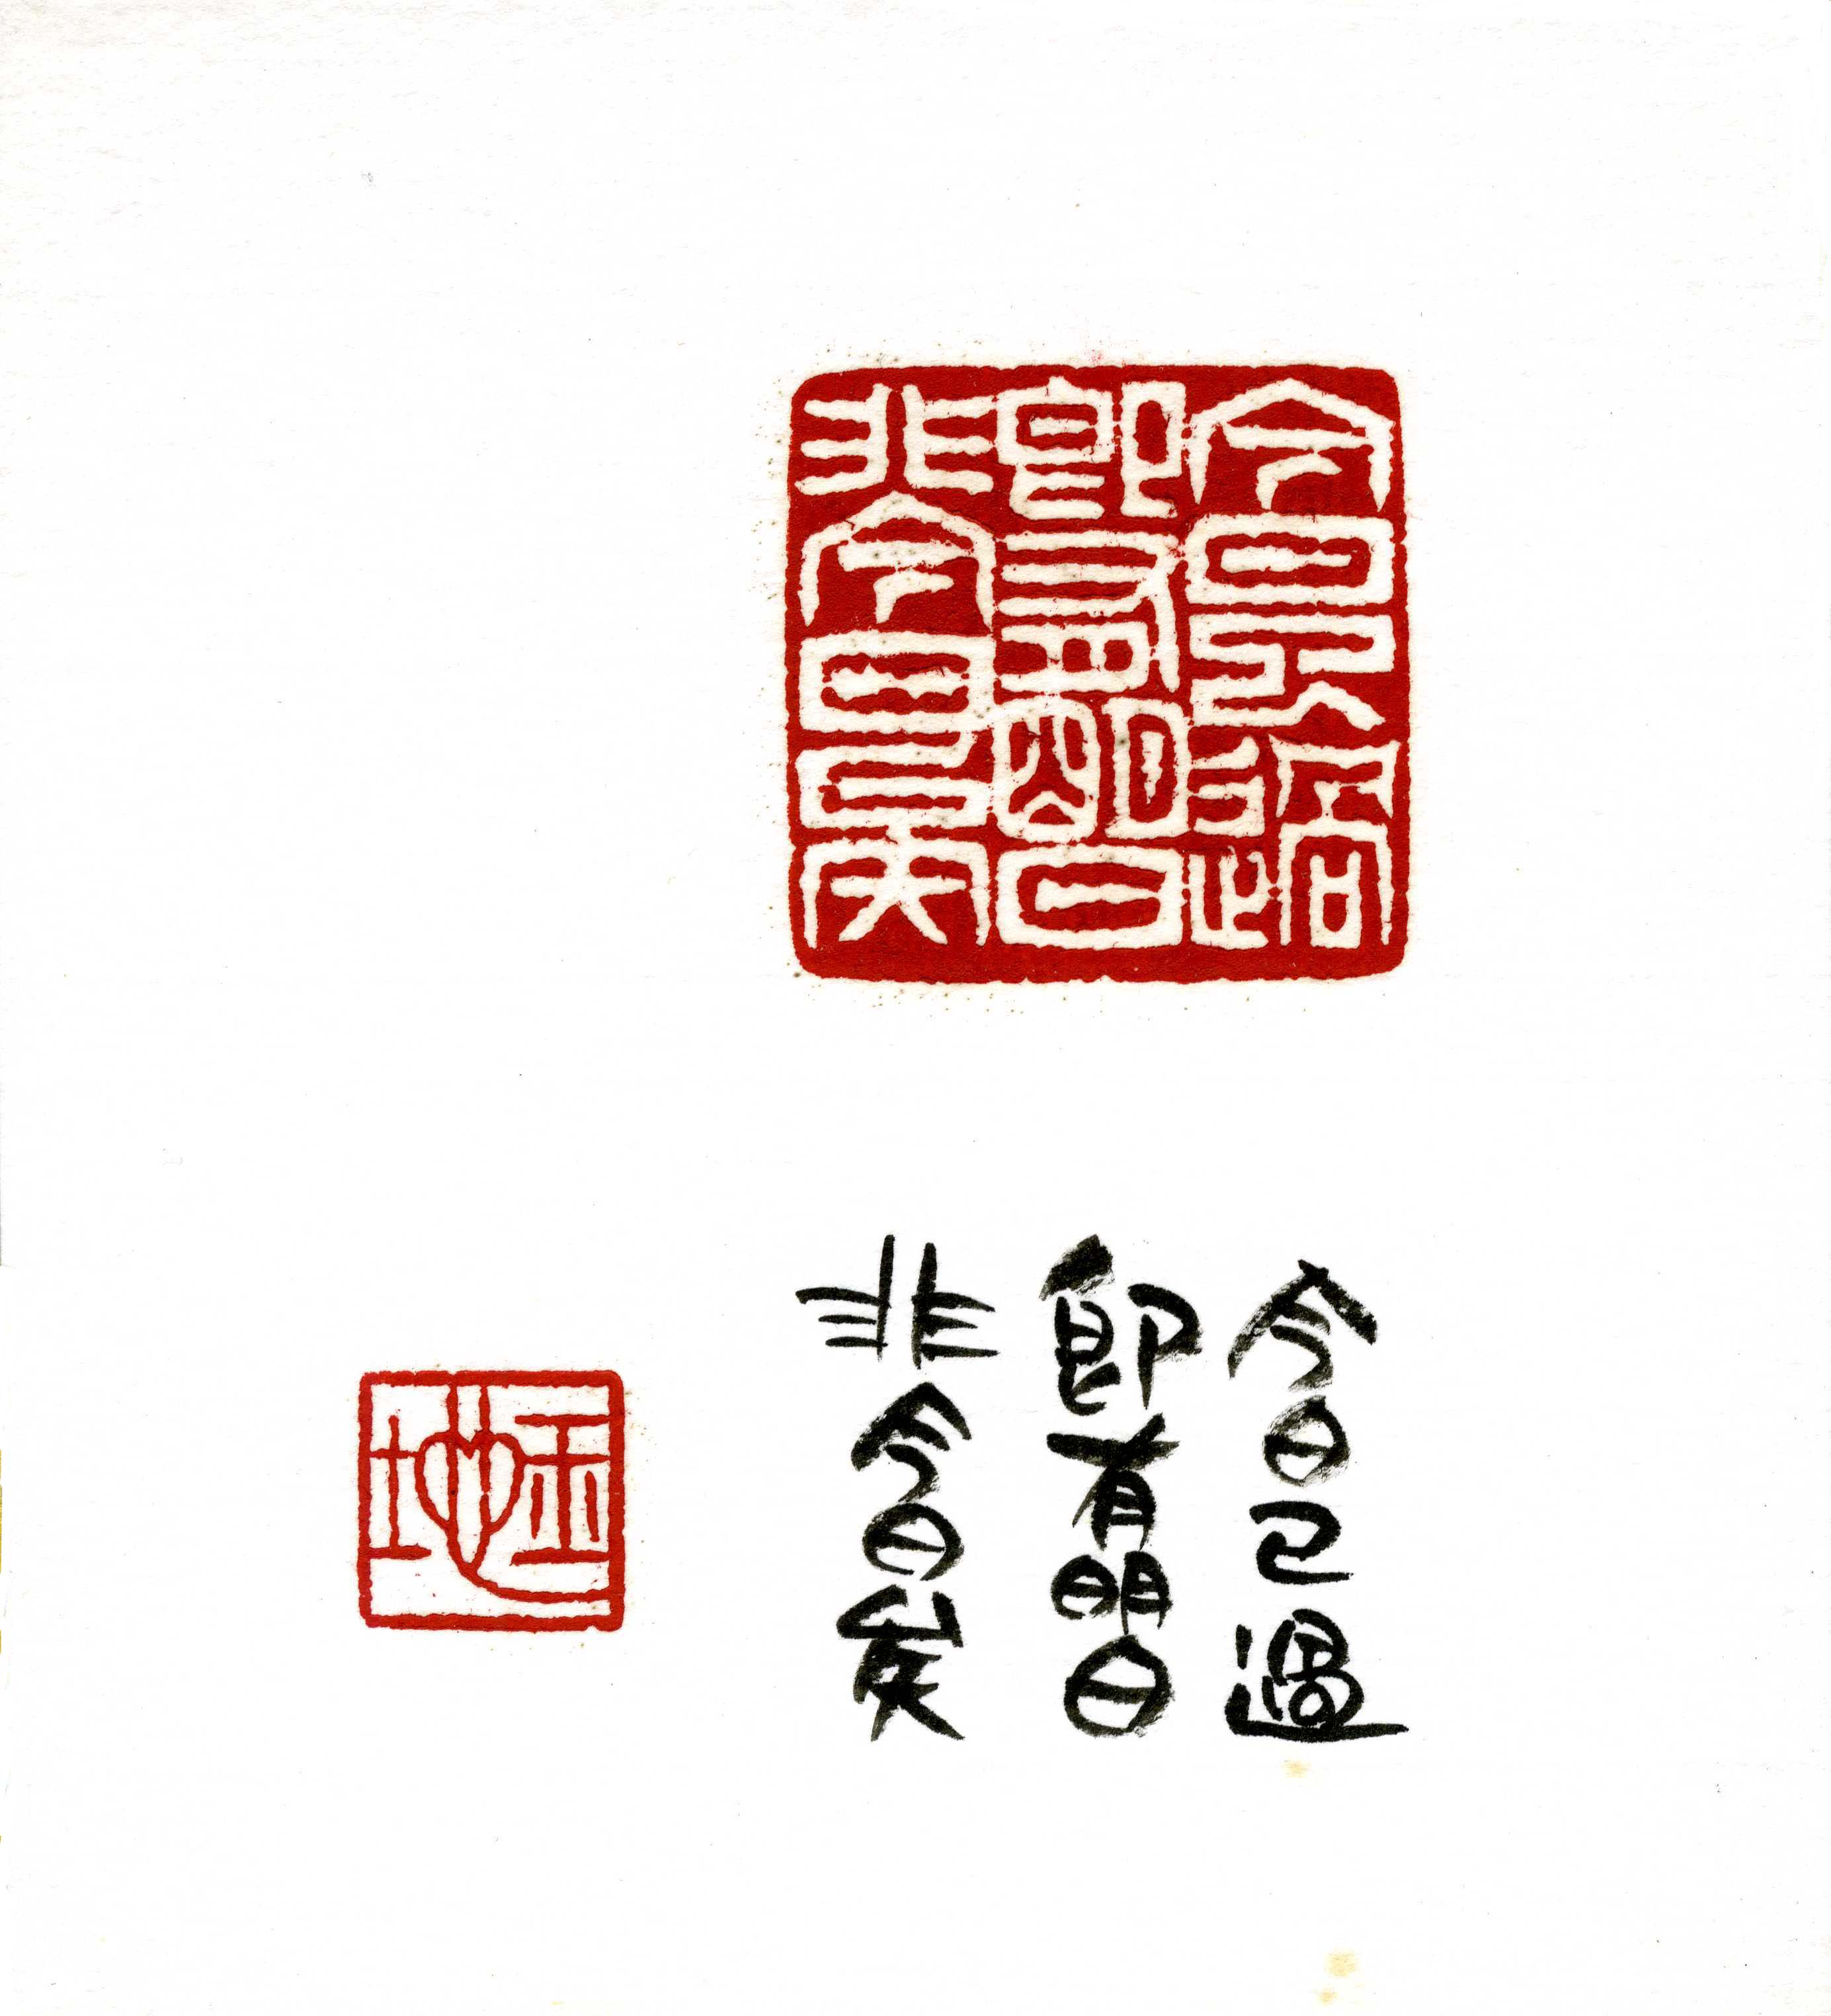 今日已過
卽有明日
非今日矣
今日已過
卽有明日
非今日矣